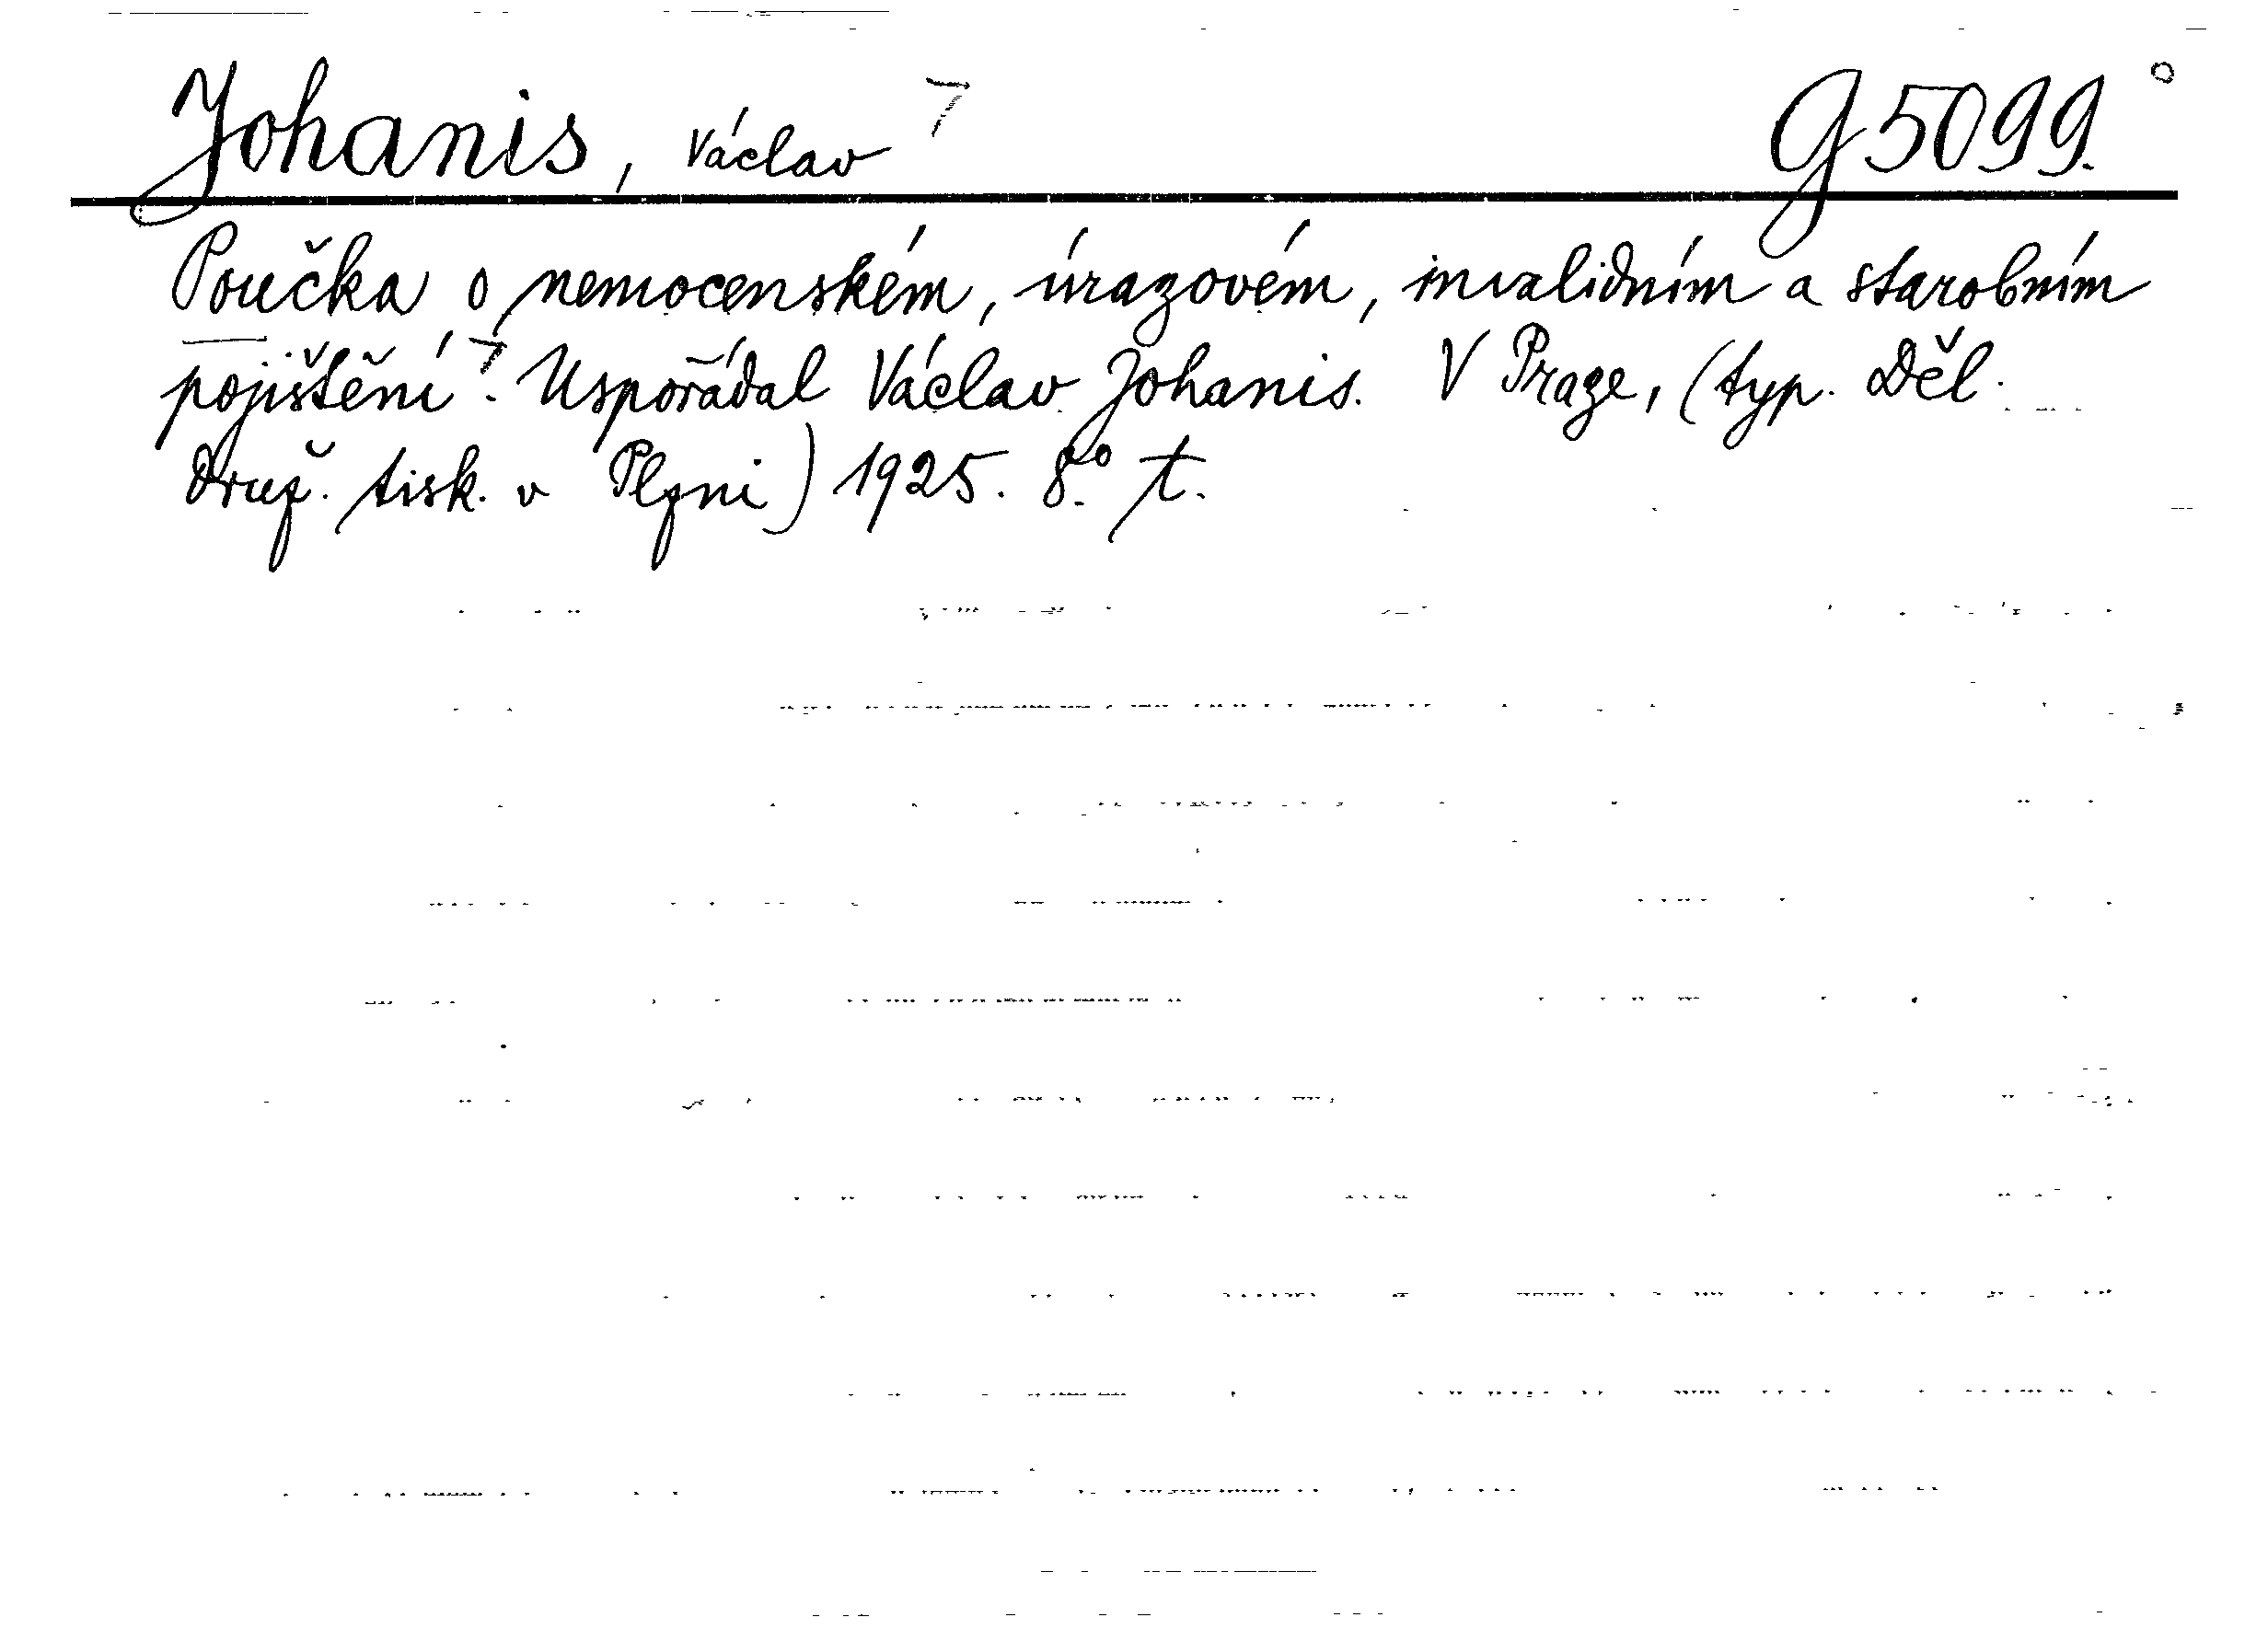 Johanis, Václav ⁊ G 5099.°
Poučka o nemocenském, úrazovém, invalidním a starobním
pojištění⁊. Uspořádal Václav Johanis. V Praze, (typ. Děl.
Druž. tisk. v Plzni) 1925. 8.° t.